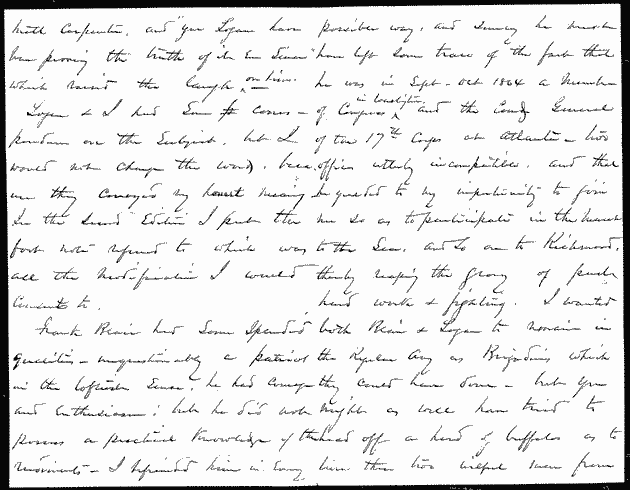 with Carpenter, and "Gen Logan have
been proving the truth of
which raised the laugh on him.
Logan & I had Some corres-
pondence on the Subject, but I
would not change the word, beca
use they conveyed my honest meaning
In the Second Edition I put the
foot note refered to which was
all the modification I would
Consent to.
Frank Blair had Some Splendid
qualities - unquestionably a patriot
in the loftiest Sense; he had courage
and Enthusiasm; but he did not
possess a practical Knowledge of
movements - I befriended him in Every
possible way, and surely he must
have left some trace of the fact that
he was in Sept - Oct 1864 a Member
of Congress and the Comdg General
of the 17th Corps at Atlanta - two
offices utterly incompatible, and that
he yielded to my importunity to join
me so as to participate in the March
to the Sea, and so on to Richmond,
thereby reaping the glory of such
hard work & fighting. I wanted
both Blair & Logan to remain in
the Regular Army as Brigadiers which
they could have done - but you
might as well have tried to
head off a herd of buffalos as to
these two men from